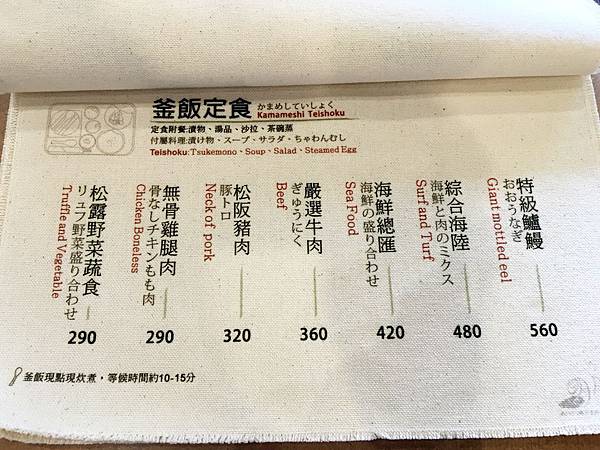 釜飯定食 かまめしていしょく
Kamameshi Teishoku
定食附餐:漬物、湯品、沙拉、茶碗蒸
付属料理:漬け物、スープ、サラダ、ちゃわんむし
Teishoku:Tsukemono、Soup、Salad、Steamed Egg
特級鱸鰻
おおうなぎ
Giant mottled eel
560
綜合海陸
海鮮と肉のミクス
Surf and Turf
480
海鮮總匯
海鮮の盛り合わせ
Sea Food
420
嚴選牛肉
ぎゅうにく
Beef
360
松阪豬肉
豚トロ
Neck of pork
320
無骨雞腿肉
骨なしチキンもも肉
Chicken Boneless
290
松露野菜蔬食
リュフ野菜盛り合わせ
Truffle and Vegetable
290
釜飯現點現炊煮，等候時間約10-15分